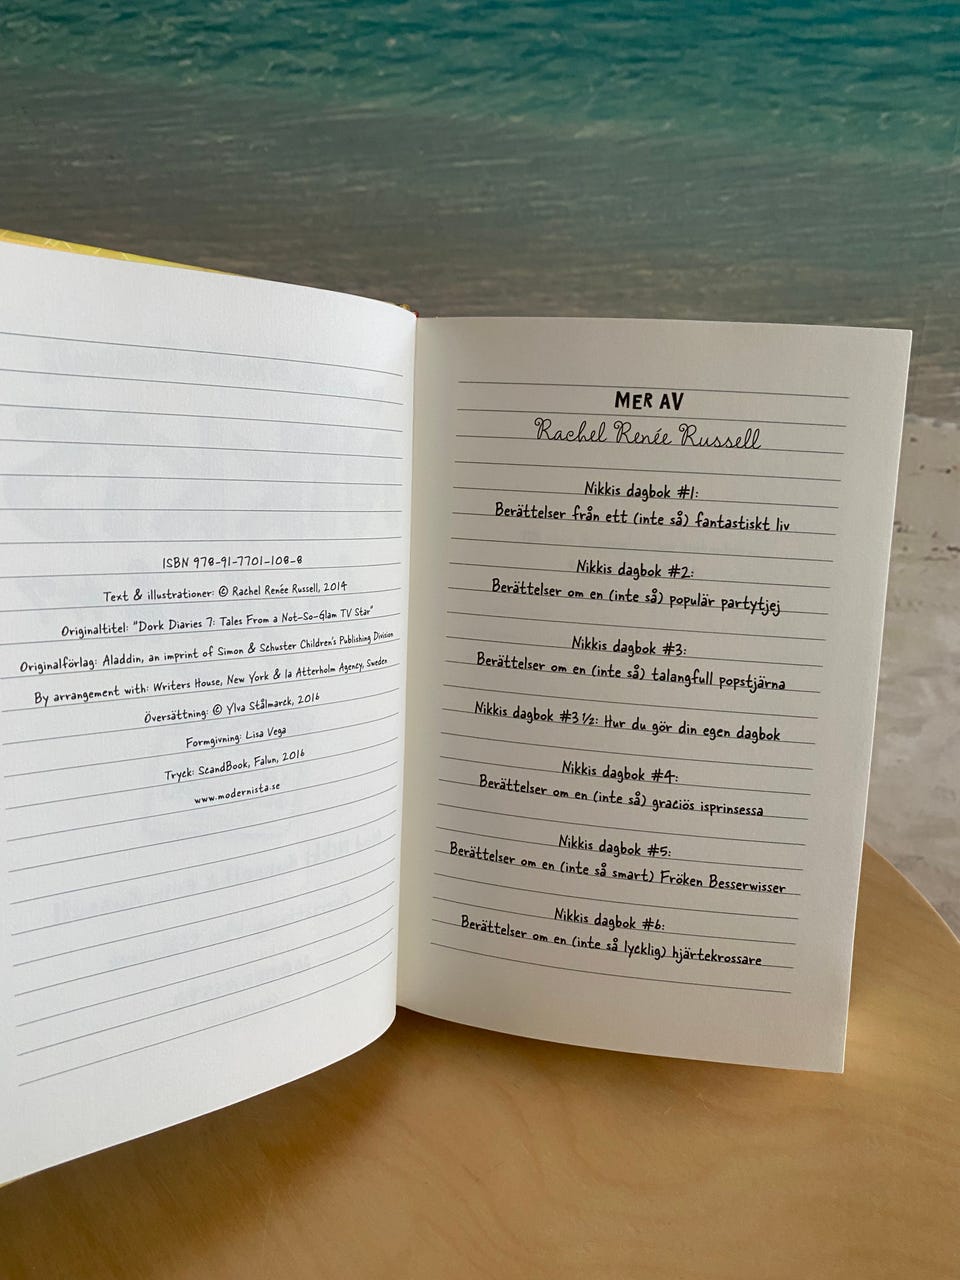 ISBN 978-91-7701-108-8
Text & illustrationer: © Rachel Renée Russell, 2014
Originaltitel: "Dork Diaries 7: Tales From a Not-So-Glam TV Star"
Originalförlag: Aladdin, an imprint of Simon & Schuster Children's Publishing Division
By arrangement with: Writers House, New York & Ia Atterholm Agency, Sweden
Översättning: © Ylva Stålmarck, 2016
Formgivning: Lisa Vega
Tryck: ScandBook, Falun, 2016
www.modernista.se
MER AV
Rachel Renée Russell
Nikkis dagbok #1:
Berättelser från ett (inte så) fantastiskt liv
Nikkis dagbok #2:
Berättelser om en (inte så) populär partytjej
Nikkis dagbok #3:
Berättelser om en (inte så) talangfull popstjärna
Nikkis dagbok #3 ½: Hur du gör din egen dagbok
Nikkis dagbok #4:
Berättelser om en (inte så) graciös isprinsessa
Nikkis dagbok #5:
Berättelser om en (inte så smart) Fröken Besserwisser
Nikkis dagbok #6:
Berättelser om en (inte så lycklig) hjärtekrossare